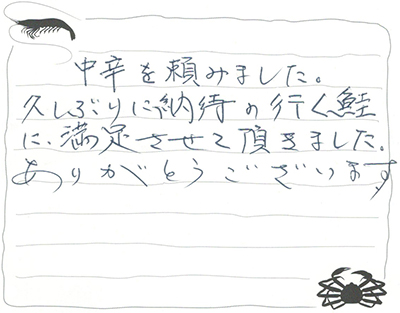 中辛を頼みました。
久しぶりに納待の行く鮭
に、満足させて頂きました。
ありがとうございます